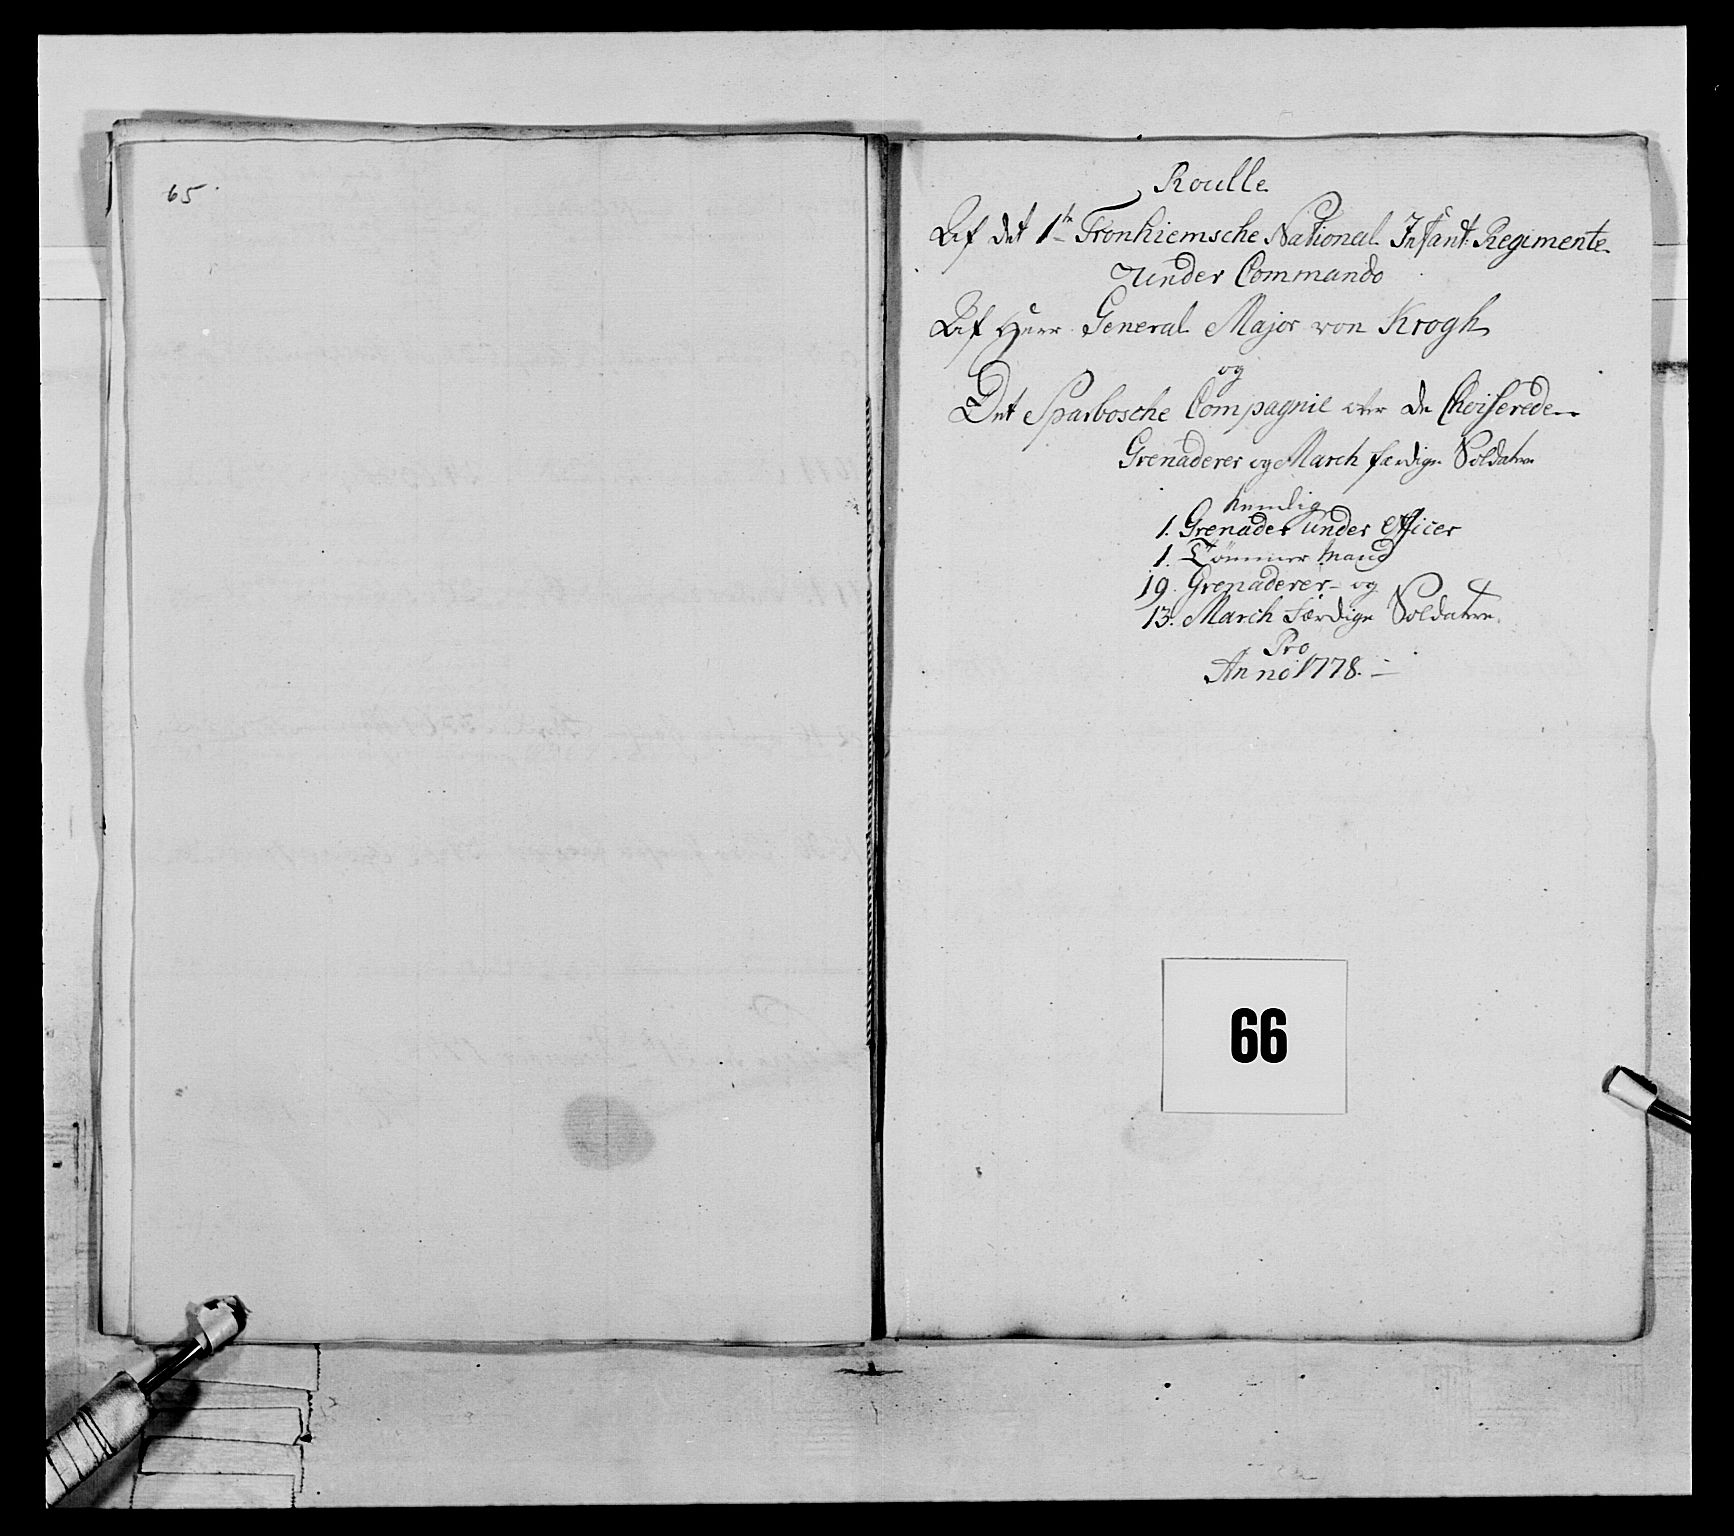 65.
Roulle
Af det 1te Tronhiemsche National Infant: Regimente
Under Commando
Af Herr General Major von Krogh
og
Det Sparbosche Compagnie over de Choiserede
Grenaderer og March færdige Soldater
Nemlig
1. Grenader under Officer
1. Tömmer Mand
19. Grenaderer og
13. March Færdige Soldatere.
Pro
Anno 1778. —
66